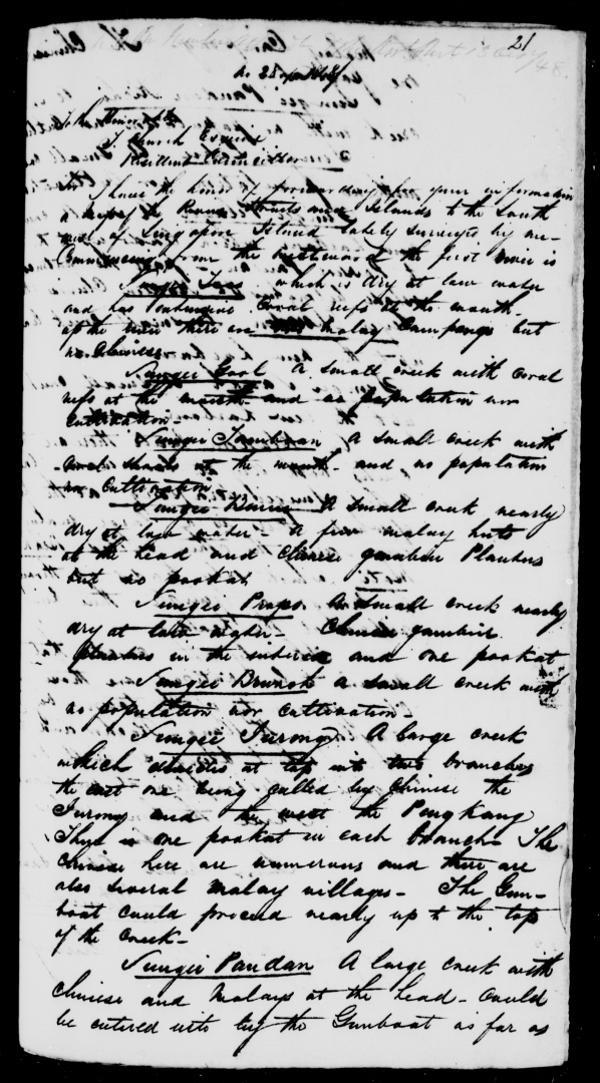 21
To the Honorable
T. Church Esquire
Resident Councillor
Sir I have the honor of forwarding for your information
a report of the Rivers Straits and Islands to the South
west of Singapore Island lately surveyed by me
Commencing from the Westward the first river is
Sungei Tuas which is dry at low water
and has extensive Coral reefs at the mouth.
up the river there are Malay Campongs but
no Chinese
Sungei A small creek with Coral
reefs at the mouth and no population nor
Cultivation
Sungei A small creek with
Coral at the mouth and no population
nor Cultivation
Sungei A small creek nearly
dry at low water - A few malay huts
at the head and Chinese gambier Planters
but no pookat
Sungei A small creek nearly
dry at low water - Chinese gambier
planters in the interior and one pookat
Sungei a small creek with
no population nor cultivation -
Sungei Jurong. A large creek
which divides at top into two branches
the east one being called by Chinese the
Jurong and the west the Peng Kang
There is one pookat in each branch The
Chinese here are numerous and there are
also several malay villages - The Gun-
boat could proceed nearly up to the top
of the creek -
Sungei Pandan A large creek with
Chinese and Malays at the head - Could
be entered into by the Gunboat as far as